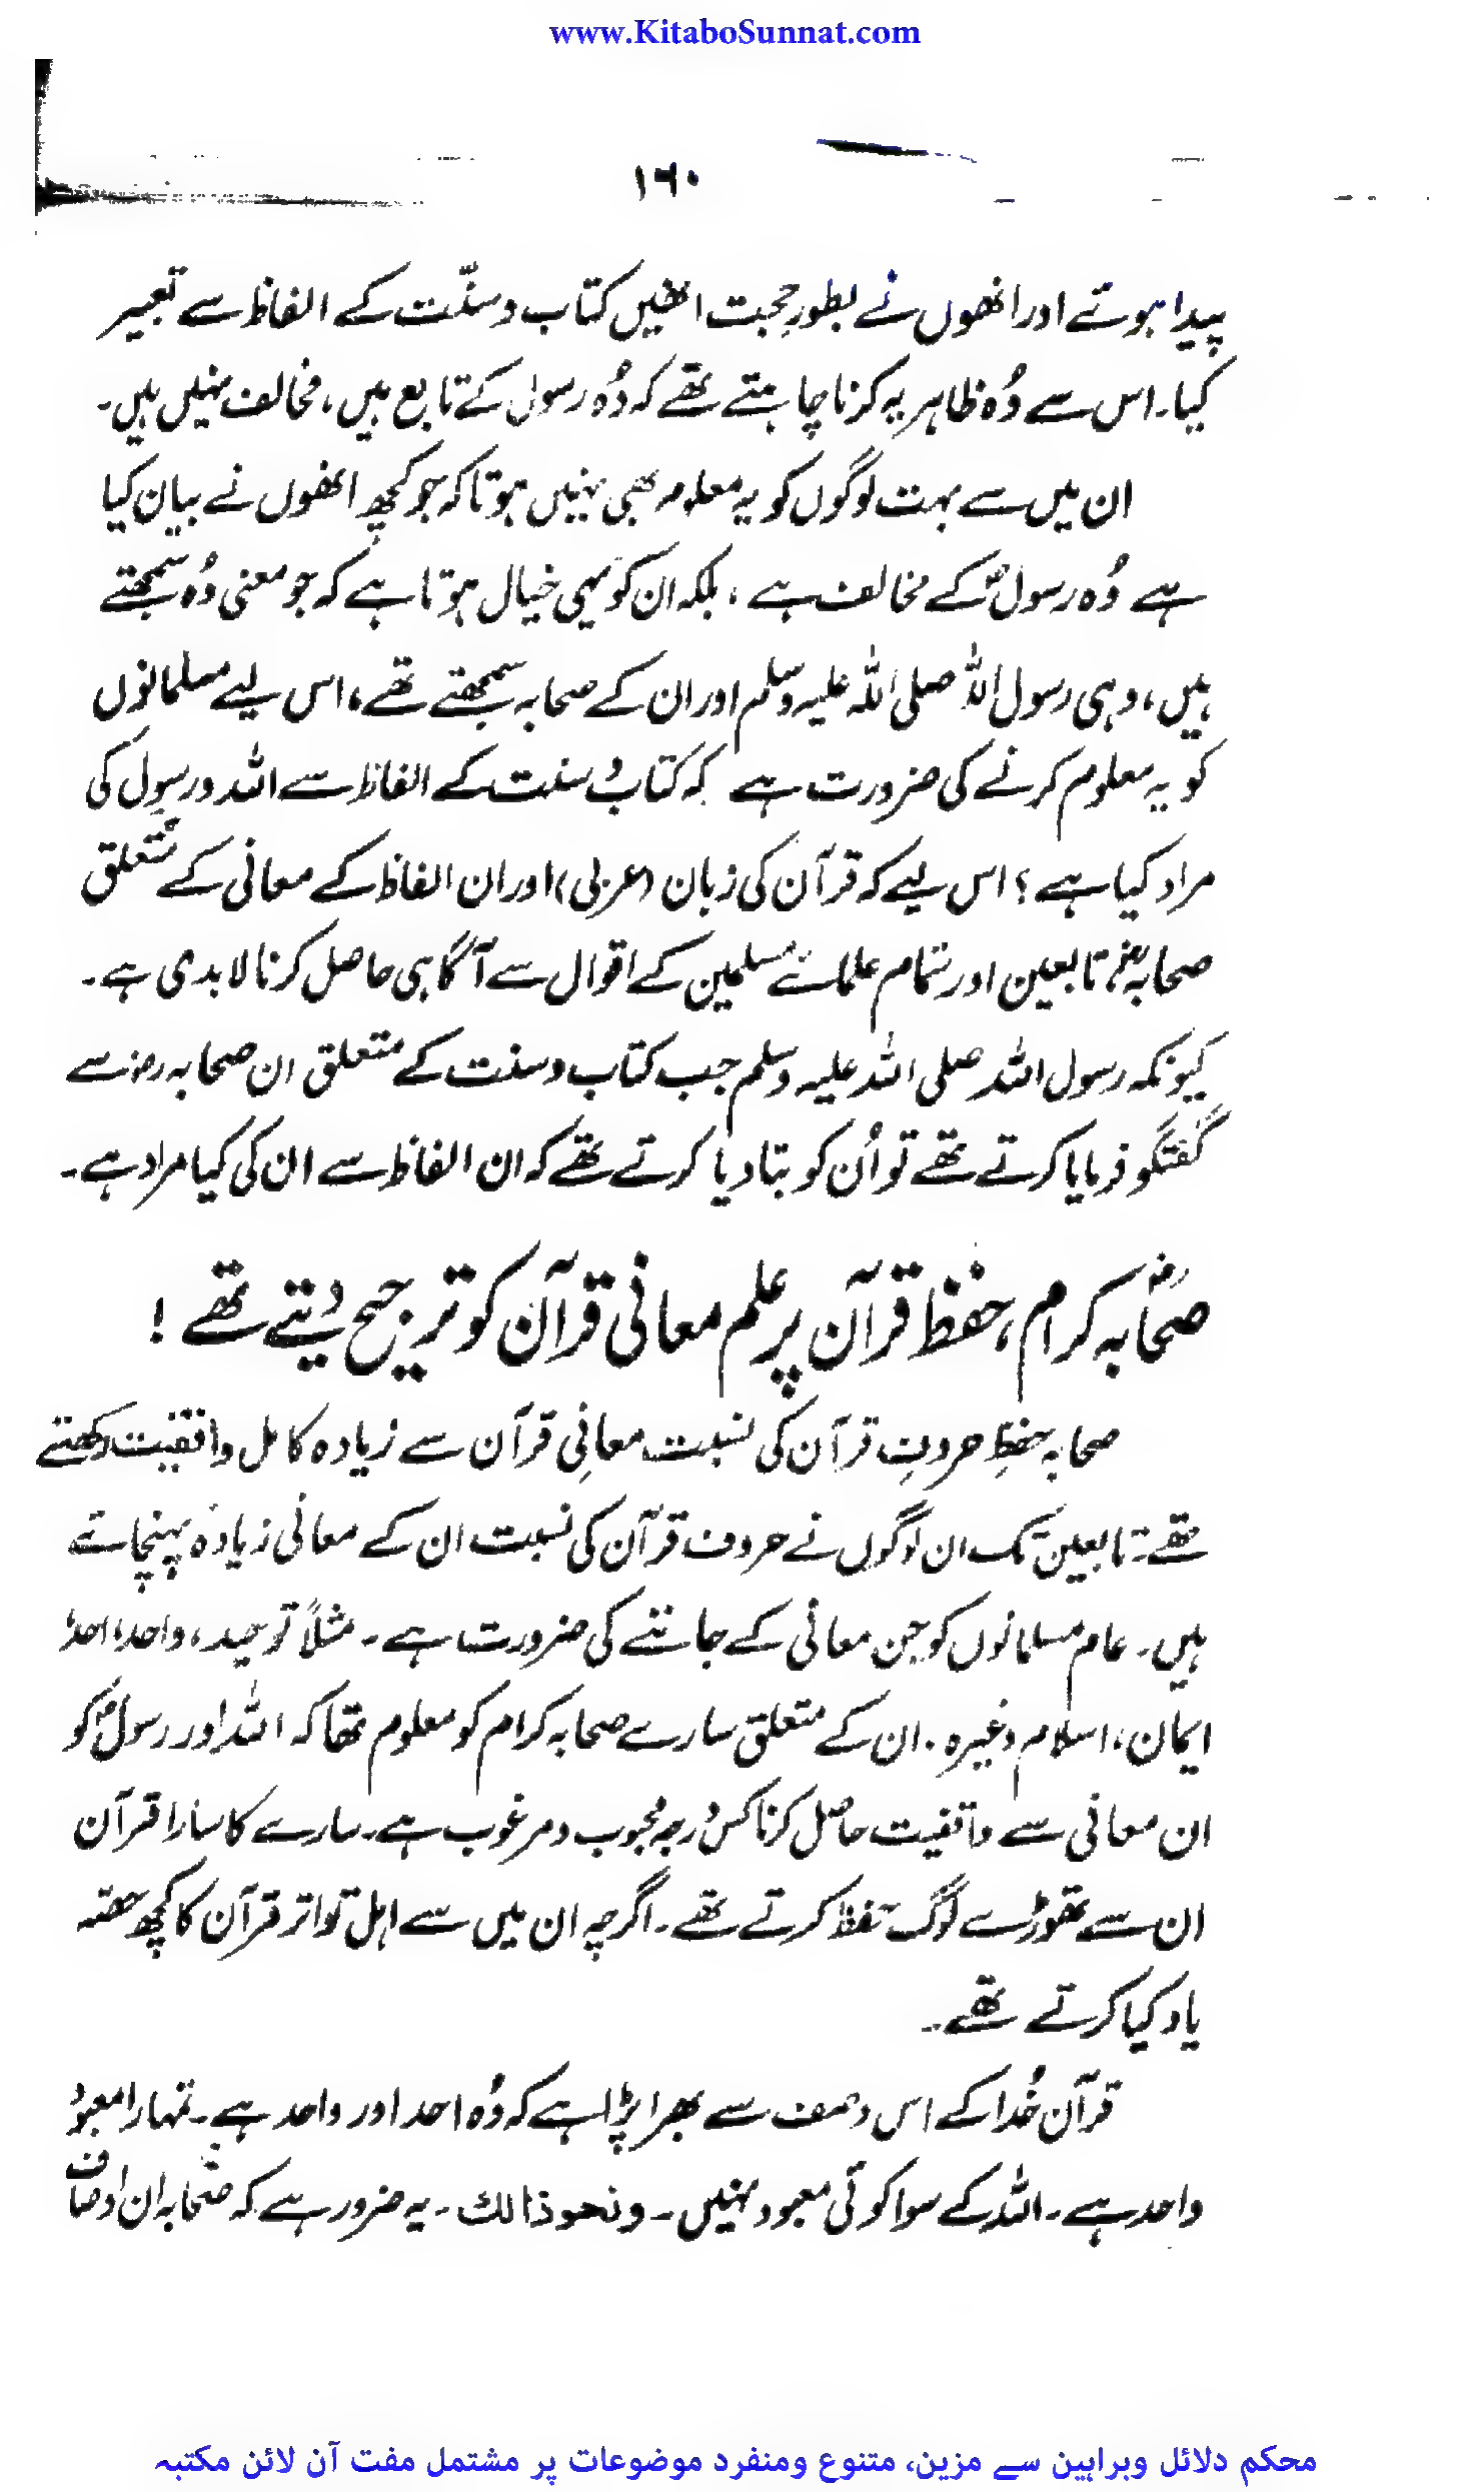 www.KitaboSunnat.com
۱۶۰
پیدا ہوتے اور انھوں نے بطورِ حجت انھیں کتاب و سنّت کے الفاظ سے تعبیر
کیا۔ اس سے وُہ ظاہر یہ کرنا چاہتے تھے کہ وُہ رسول کے تابع ہیں، مخالف نہیں ہیں۔
ان میں سے بہت لوگوں کو یہ معلوم بھی نہیں ہوتا کہ جو کچھ انھوں نے بیان کیا
ہے وُہ رسولؐ کے مخالف ہے، بلکہ ان کو یہی خیال ہوتا ہے کہ جو معنی وُہ سمجھتے
ہیں، وہی رسول اللہ صلی اللہ علیہ وسلم اور ان کے صحابہ سمجھتے تھے، اس لیے مسلمانوں
کو یہ معلوم کرنے کی ضرورت ہے کہ کتاب و سنت کے الفاظ سے اللہ و رسول کی
مراد کیا ہے؟ اس لیے کہ قرآن کی زبان (عربی) اور ان الفاظ کے معانی کے متعلق
صحابہؓ، تابعین اور تمام علمائے مسلمین کے اقوال سے آگاہی حاصل کرنا لابدی ہے۔
کیونکہ رسول اللہ صلی اللہ علیہ وسلم جب کتاب و سنت کے متعلق ان صحابہ رضؓ سے
گفتگو فرمایا کرتے تھے تو اُن کو بتا دیا کرتے تھے کہ ان الفاظ سے ان کی کیا مراد ہے۔
صحابہ کرامؓ، حفظ قرآن پر علم معانی قرآن کو ترجیح دیتے تھے!
صحابہ حفظِ حروفِ قرآن کی نسبت معانیِ قرآن سے زیادہ کامل واقفیت رکھتے
تھے۔ تابعین تک ان لوگوں نے حروف قرآن کی نسبت ان کے معانی زیادہ پہنچائے
ہیں۔ عام مسلمانوں کو جن معانی کے جاننے کی ضرورت ہے۔ مثلاً توحید، واحد، احد،
ایمان، اسلام وغیرہ۔ ان کے متعلق سارے صحابہ کرام کو معلوم تھا کہ اللہ اور رسولؐ کو
ان معانی سے واقفیت حاصل کرنا کس درجہ محبوب و مرغوب ہے۔ سارے کا سارا قرآن
ان سے تھوڑے لوگ حفظ کرتے تھے۔ اگرچہ ان میں سے اہل تواتر قرآن کا کچھ حصّہ
یاد کیا کرتے تھے۔
قرآن خُدا کے اس وصف سے بھرا پڑا ہے کہ وُہ احد اور واحد ہے۔ تمہارا معبود
واحد ہے۔ اللہ کے سوا کوئی معبود نہیں۔ ونحو ذالك۔ یہ ضرور ہے کہ صحابہ ان اوصاف
محکم دلائل وبراہین سے مزین، متنوع ومنفرد موضوعات پر مشتمل مفت آن لائن مکتبہ